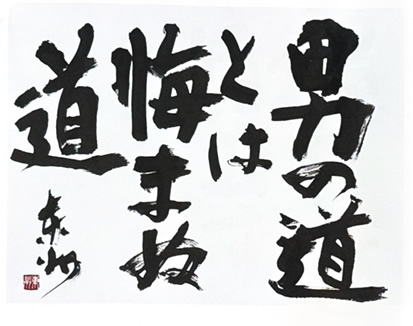 男の道
とは
悔まぬ
道
東州